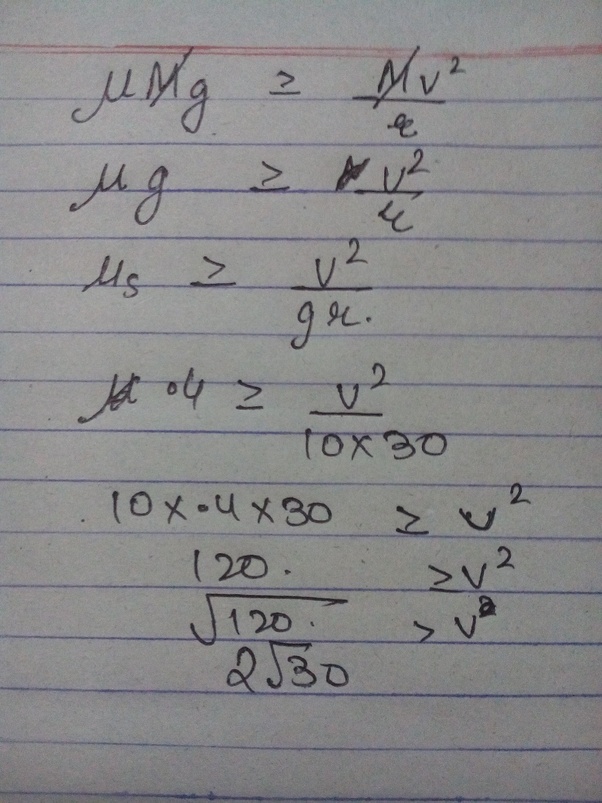 μMg ≥ Mv²/r
μg ≥ v²/r
μs ≥ v²/gr.
·4 ≥ v²/10×30
10×·4×30 ≥ v²
120. ≥v²
√120. > v
2√30